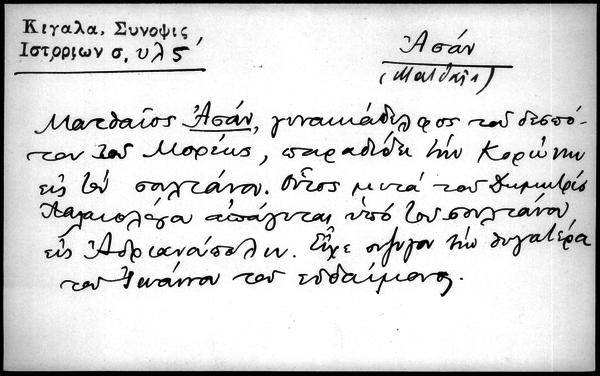 Κιγαλα, Συνοψις
Ιστορριων σ. υλς′
Ἀσάν
(Ματθαῖος)
Ματθαῖος Ἀσάν, γυναικάδελφος τοῦ δεσπό-
του τοῦ Μορέως, παραδίδει τὴν Κορώνην
εἰς τὸν σουλτάνον. Οὗτος μετά τοῦ Δημητρίου
Παλαιολόγου ἀπάγεται ὑπό τοῦ σουλτάνου
εἰς Ἀδριανούπολιν. Εἶχε σύζυγον τὴν θυγατέρα
τοῦ Ἰωάννου τοῦ εὐδαίμονος.